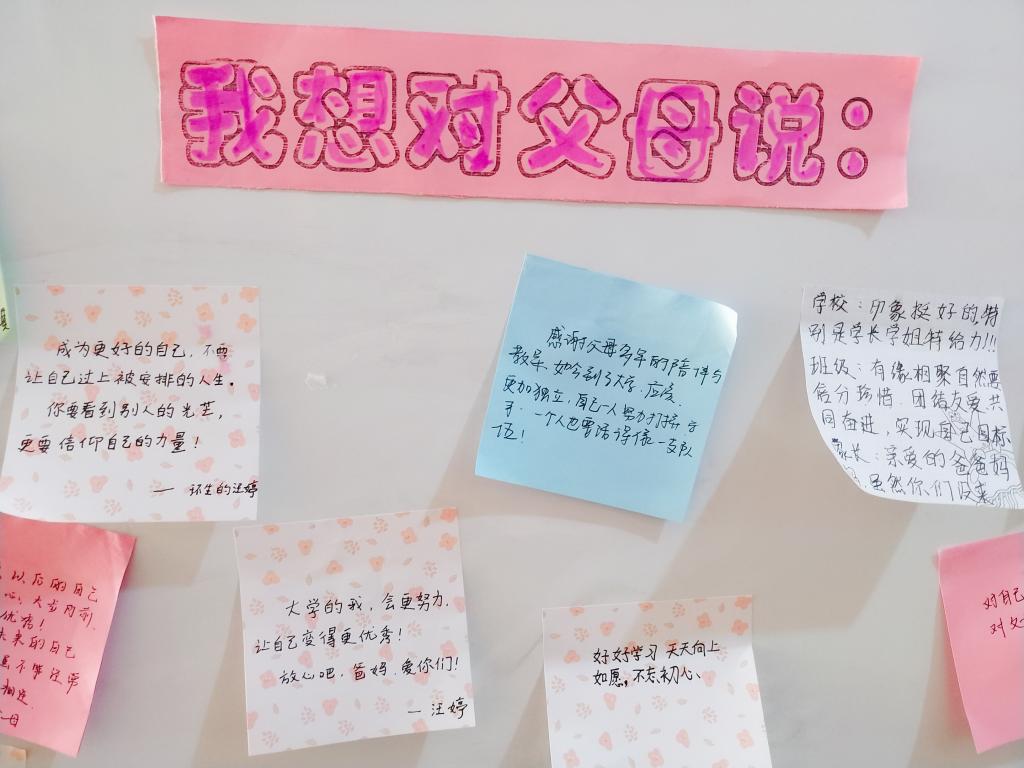 我想对父母说：
成为更好的自己，不要
让自己过上被安排的人生。
你要看到别人的光芒，
更要信仰自己的力量！
— 环生的汪婷
感谢父母多年的陪伴与
教导，如今到了大学，应该
更加独立，自己一人努力打拼
一个人也要活得像一支队
伍！
学校：印象挺好的，特
别是学长学姐特给力!!!
班级：有缘相聚自然要
倍分珍惜。团结友爱，共
同奋进，实现自己目标
家长：亲爱的爸爸妈
虽然你们没来
以后的自己
优秀！
未来的自己
大学的我，会更努力，
让自己变得更优秀！
放心吧，爸妈，爱你们！
— 汪婷
好好学习 天天向上
如愿，不忘初心、
对自己
对父